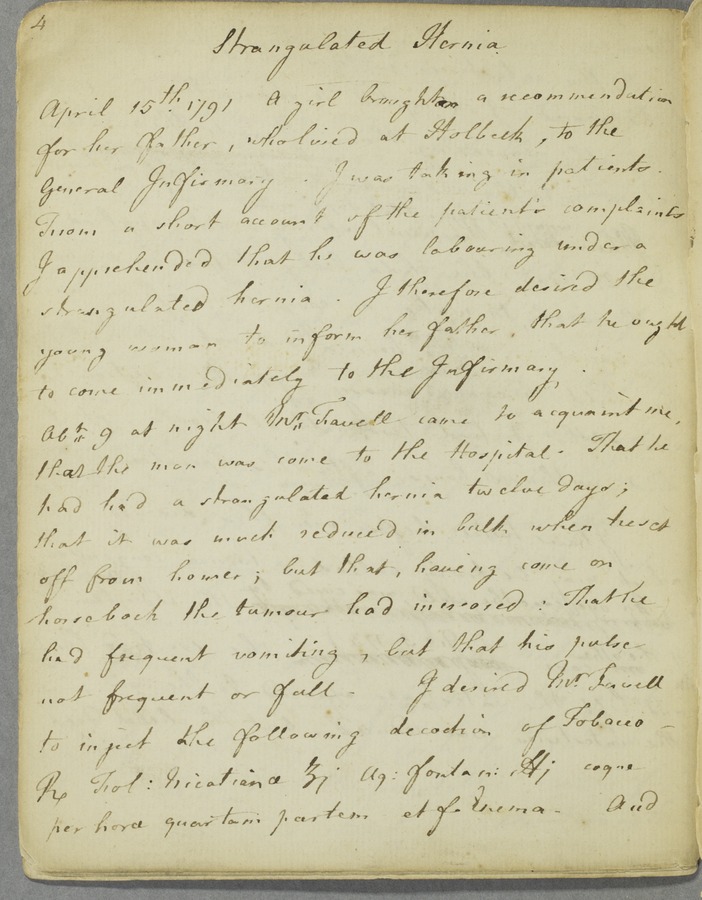 4
Strangulated Hernia
April 15th. 1791 A girl brought a recommendation
for her father, who lived at Holbeck, to the
General Infirmary. I was taking in patients.
From a short account of the patient's complaints
I apprehended that he was labouring under a
strangulated hernia. I therefore desired the
young woman to inform her father, that he ought
to come immediately to the Infirmary.
Abt. 9 at night Mr. Favell came to acquaint me,
that the man was come to the Hospital. That he
had had a strangulated hernia twelve days;
that it was much reduced in bulk when he set
off from home; but that, having come on
horseback the tumour had increased: That he
had frequent vomiting, but that his pulse
not frequent or full - I desired Mr. Favell
to inject the following decoction of Tobacco -
℞ Fol: Nicotianæ ʒj Aq: fontan: ℔j coque
per horæ quartam partem et f. Enema - And